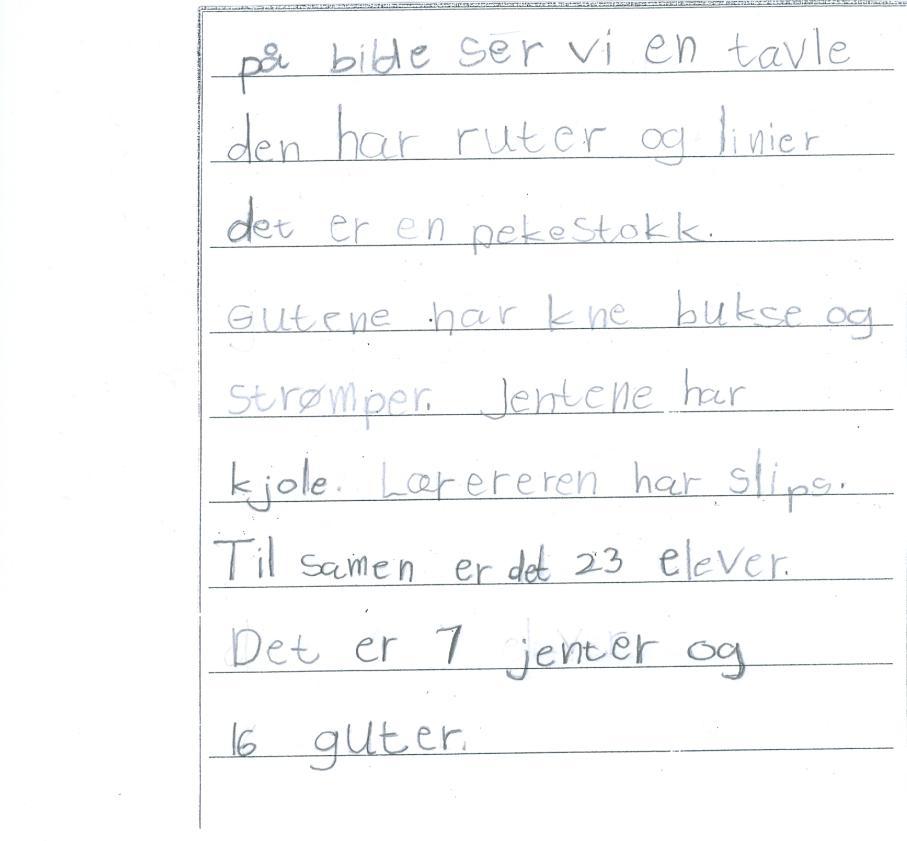 på bilde ser vi en tavle
den har ruter og linier
det er en pekestokk.
Gutene har kne bukse og
strømper. Jentene har
kjole. Lærereren har slips.
Til samen er det 23 elever.
Det er 7 jenter og
16 guter.